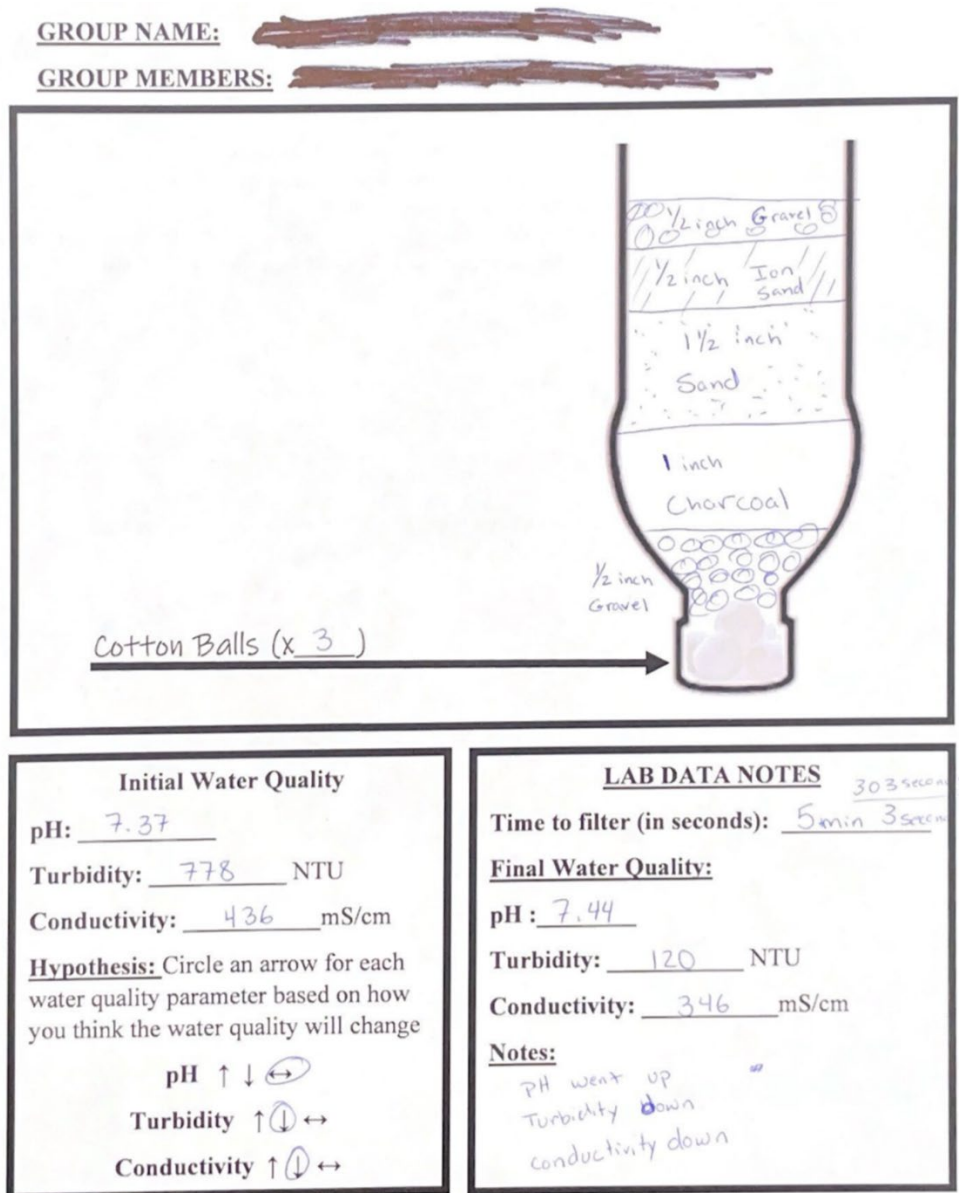 GROUP NAME:
GROUP MEMBERS:
1/2 inch Gravel
1/2 inch Ion
Sand
1 1/2 inch
Sand
1 inch
Charcoal
1/2 inch
Gravel
Cotton Balls (x 3 )
Initial Water Quality
pH: 7.37
Turbidity: 778 NTU
Conductivity: 436 mS/cm
Hypothesis: Circle an arrow for each
water quality parameter based on how
you think the water quality will change
pH ↑ ↓ ↔
Turbidity ↑ ↓ ↔
Conductivity ↑ ↓ ↔
LAB DATA NOTES
303 secon
Time to filter (in seconds): 5 min 3 secon
Final Water Quality:
pH : 7.44
Turbidity: 120 NTU
Conductivity: 346 mS/cm
Notes:
pH went up
Turbidity down
conductivity down